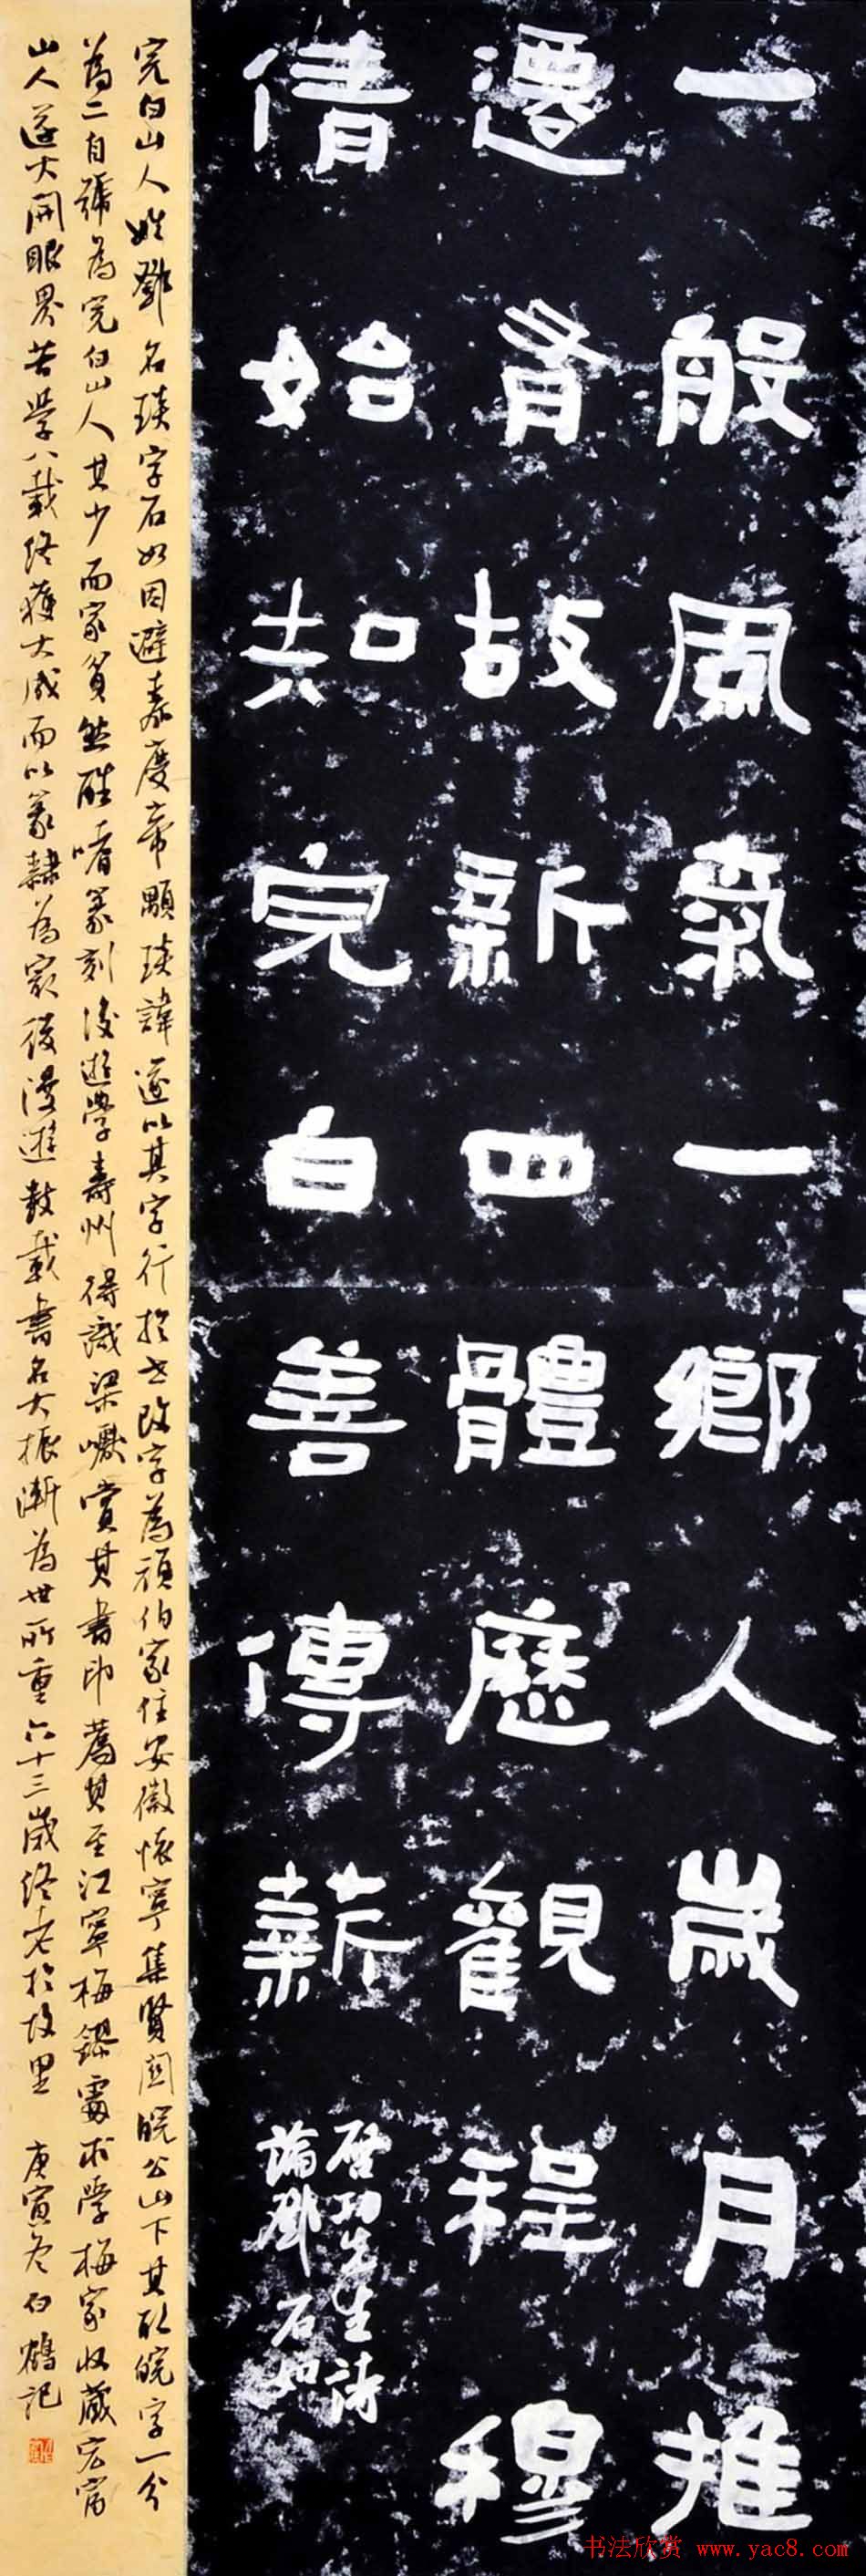 一般風氣一鄉人歲月推
遷有故新四體歷觀程穆
倩始知完白善傳薪
啓功先生詩
論鄧石如
完白山人姓鄧名琰字石如因避嘉慶帝顒琰諱遂以其字行於世改字為頑伯家住安徽懷寧集賢關皖公山下其取皖字一分
為二自號為完白山人其少而家貧然酷嗜篆刻後遊學壽州得識梁巘賞其書印薦其至江寧梅鏐處求學梅家收藏宏富
山人遂大開眼界苦學八載終獲大成而以篆隸為最後漫遊數載書名大振漸為世所重六十三歲終老於故里 庚寅冬白鶴記
书法欣赏 www.yac8.com